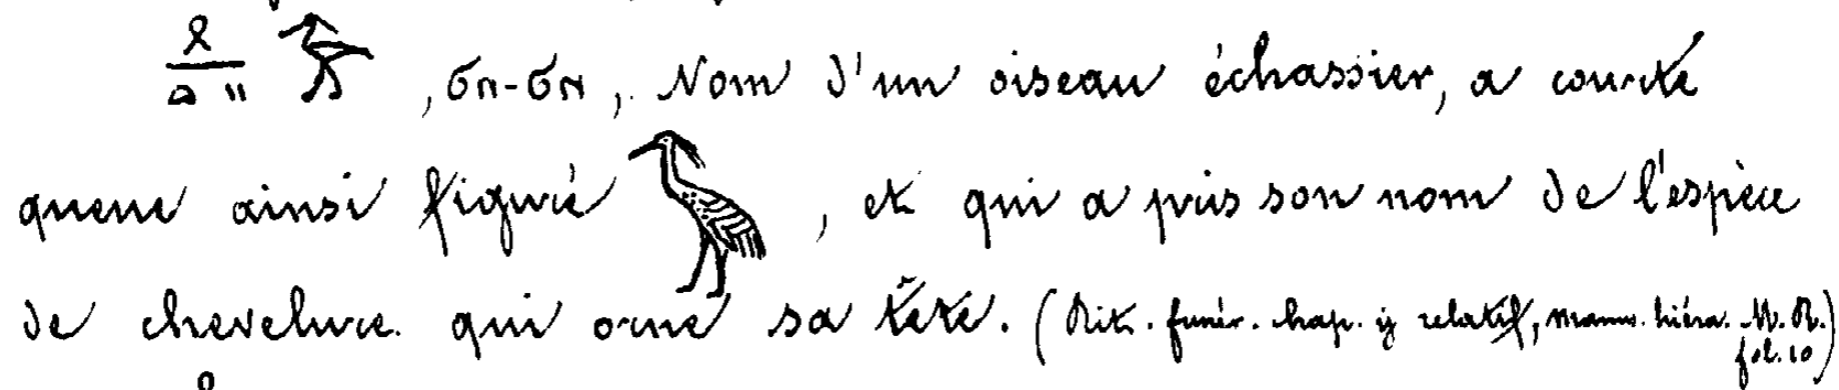 , ϭⲛ-ϭⲛ, Nom d'un oiseau échassier, a courte
queue ainsi figuré , et qui a pris son nom de l'espèce
de chevelure qui orne sa tête. (Rit. funér. chap. ij relatif, manus. hiéra. M. R.)
fol. 10